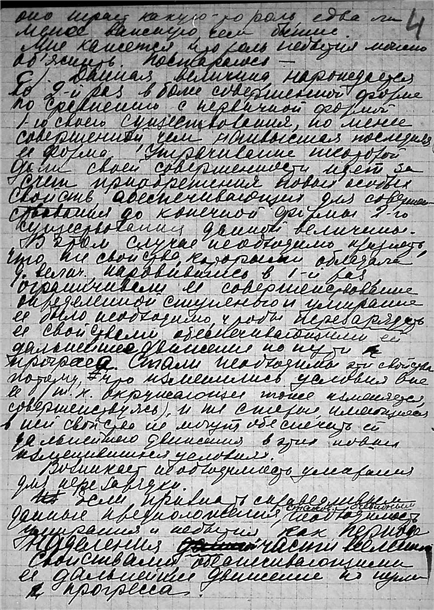 оно играет какую-то роль, едва ли 4
менее важную, чем бытие.
Мне кажется, что роль небытия можно
объяснить. Постараюсь —
Данная величина нарождается
во 2-й раз в более совершенной форме
по сравнению с первичной формой
1-го своего существования, но менее
совершенной чем наивысшая последняя
ее форма. Утрачивание некоторой
доли своей совершенности идет за
счет приобретения новых особых
свойств обеспечивающих для совершен-
ствования до конечной формы 2-го
существования данной величины.
В этом случае необходимо признать,
что те свойства, которыми обладала
велич. народившись в 1-й раз
ограничивали ее совершенствование
определенной ступенью и умирание
ее было необходимо чтобы перезарядить
ее свойствами обеспечивающими ей
дальнейшее движение по пути к
прогрессу. Стали необходимы эти свойства
потому, что изменились условия вне
ее (т.к. окружающее тоже изменяется,
совершенствуясь), и те старые, имеющиеся
в ней свойства не могут обеспечить ей
дальнейшего движения в этих новых
изменившихся условиях.
Возникает необходимость умирания
для перезарядки.
Если признать справедливым
данные предположения, становится очевидным необходимость
умирания и небытия как период
наделения частей величины
свойствами обеспечивающими
ее дальнейшее движение по пути
к прогресса.